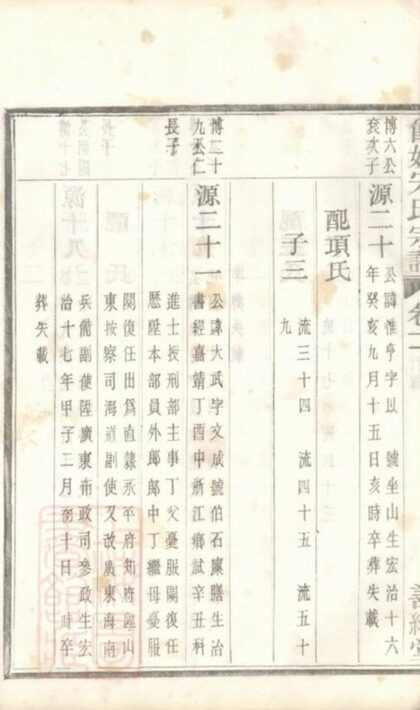 博六公
袞次子
源二十
公諱惟亨字以 號坐山生宏治十六
年癸亥九月十五日亥時卒葬失載
配項氏
子三
流三十四 流四十五 流五十
九
博二十
九公仁
長子
源二十一
公諱大武字文成號伯石廩膳生治
書經嘉靖丁酉中浙江鄉試辛丑科
進士授刑部主事丁父憂服闋復任
歷陞本部員外郎郎中丁繼母憂服
闋復任出爲直隸永平府知府陞山
東按察司海道副使又改廣東海南
兵備副使陞廣東布政司參政生宏
治十七年甲子三月初十日 時卒
葬失載